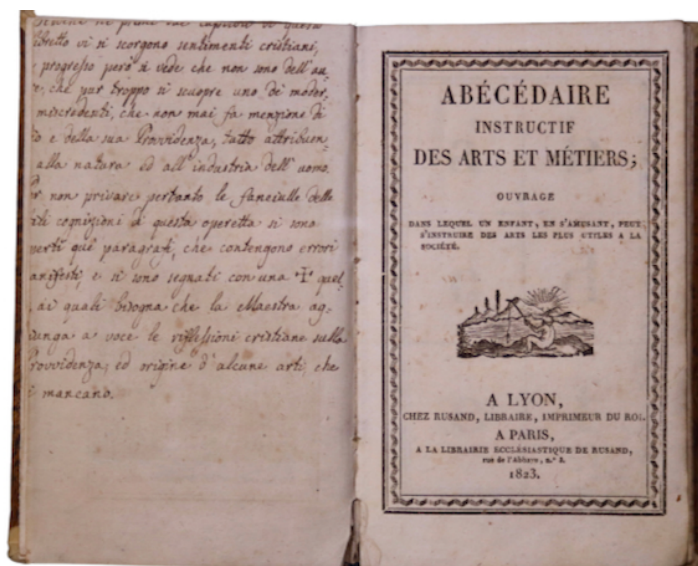 ne' primi due capitoli di questo
libretto vi si scorgono sentimenti cristiani,
progresso però si vede che non sono dell'au-
che pur troppo si scuopre uno de' moder-
miscredenti, che non mai fa menzione di
e della sua Provvidenza, tutto attribuen-
alla natura ed all'industria dell'uomo.
non privare pertanto le fanciulle delle
cognizioni di questa operetta si sono
que' paragrafi, che contengono errori
e si sono segnati con una † quel-
ai quali bisogna che la Maestra ag-
a voce le riflessioni cristiane sulla
Provvidenza, ed origine d'alcune arti che
mancano.
ABÉCÉDAIRE
INSTRUCTIF
DES ARTS ET MÉTIERS;
OUVRAGE
DANS LEQUEL UN ENFANT, EN S'AMUSANT, PEUT
S'INSTRUIRE DES ARTS LES PLUS UTILES A LA
SOCIÉTÉ.
A LYON,
CHEZ RUSAND, LIBRAIRE, IMPRIMEUR DU ROI.
A PARIS,
A LA LIBRAIRIE ECCLÉSIASTIQUE DE RUSAND,
rue de l'Abbaye, n.º 3.
1823.